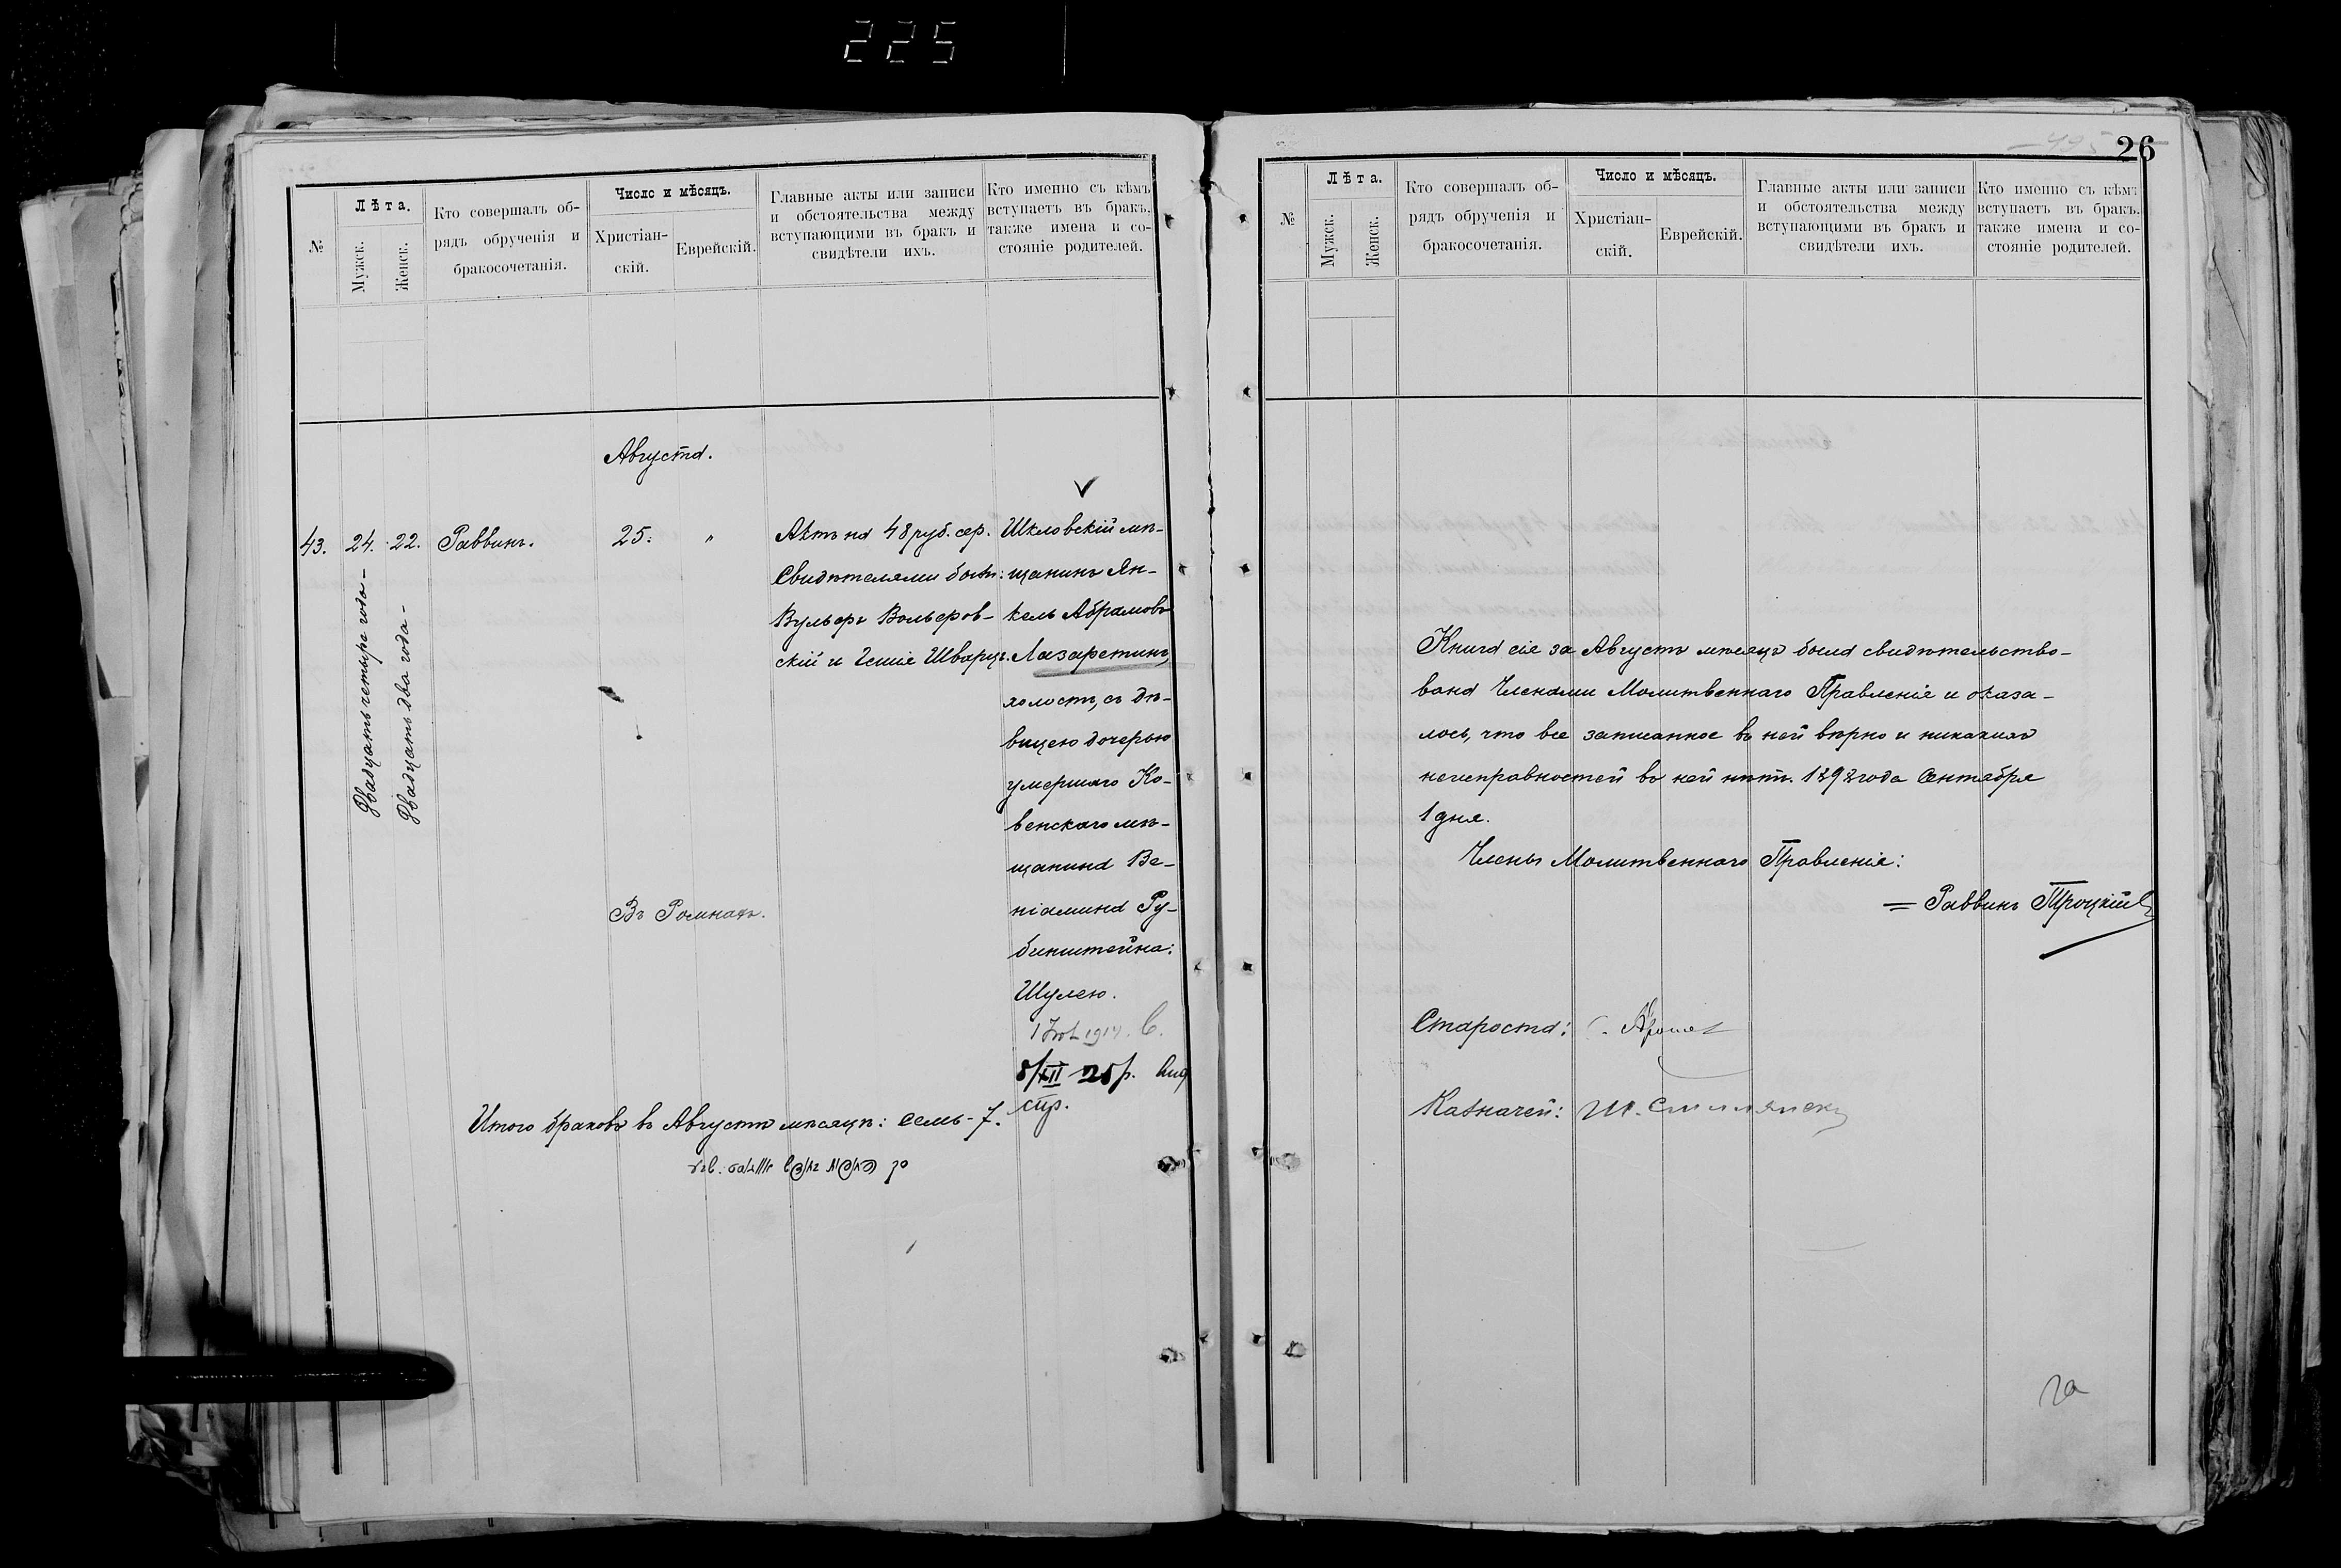 225
№
Лѣта.
Мужск.
Женск.
Кто совершалъ об-
рядъ обрученія и
бракосочетанія.
Число и мѣсяцъ.
Христіан-
скій.
Еврейскій.
Главные акты или записи
и обстоятельства между
вступающими въ бракъ и
свидѣтели ихъ.
Кто именно съ кѣмъ
вступаетъ въ бракъ,
также имена и со-
стояніе родителей.
Августа.
43.
24.
Двадцать четыре года-
22.
Двадцать два года-
Раввинъ.
25.
"
Въ Ромнахъ.
Актъ на 48 руб. сер.
Свидѣтелями были:
Вульфъ Вольфов-
скій и Шварцъ.
Шкловскій мѣ-
щанинъ Ян-
кель Абрамовъ
Лазаретинъ,
холостъ, съ дѣ-
вицею дочерью
умершаго Ко-
венскаго мѣ-
щанина Ве-
ніамина Ру-
бинштейна:
Шулею.
8/XII 25 р.
спр.
Итого браковъ въ Августѣ мѣсяцѣ: семь-7.
26
№
Лѣта.
Мужск.
Женск.
Кто совершалъ об-
рядъ обрученія и
бракосочетанія.
Число и мѣсяцъ.
Христіан-
скій.
Еврейскій.
Главные акты или записи
и обстоятельства между
вступающими въ бракъ и
свидѣтели ихъ.
Кто именно съ кѣмъ
вступаетъ въ бракъ.
также имена и со-
стояніе родителей.
Книга сія за Августъ мѣсяцъ была свидѣтельство-
вана Членами Молитвеннаго Правленія и оказа-
лось, что все записанное въ ней вѣрно и никакихъ
неисправностей въ ней нѣтъ. 1898 года Сентября
1 дня.
Члены Молитвеннаго Правленія:
= Раввинъ Троцкій
Староста:
Казначей: Ш.